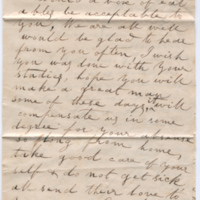 a box of eat
ables be acceptable to
you. We are all well
would be glad to hear
from you often I wish
you was done with your
studies, hope you will
make a great man
some of these days & will
compensate us in some
degree for your absence
so long from home,
take good care of your
self & do not get sick
all send their love to